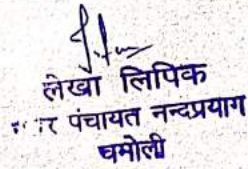 लेखा लिपिक
पंचायत नन्दप्रयाग
चमोली